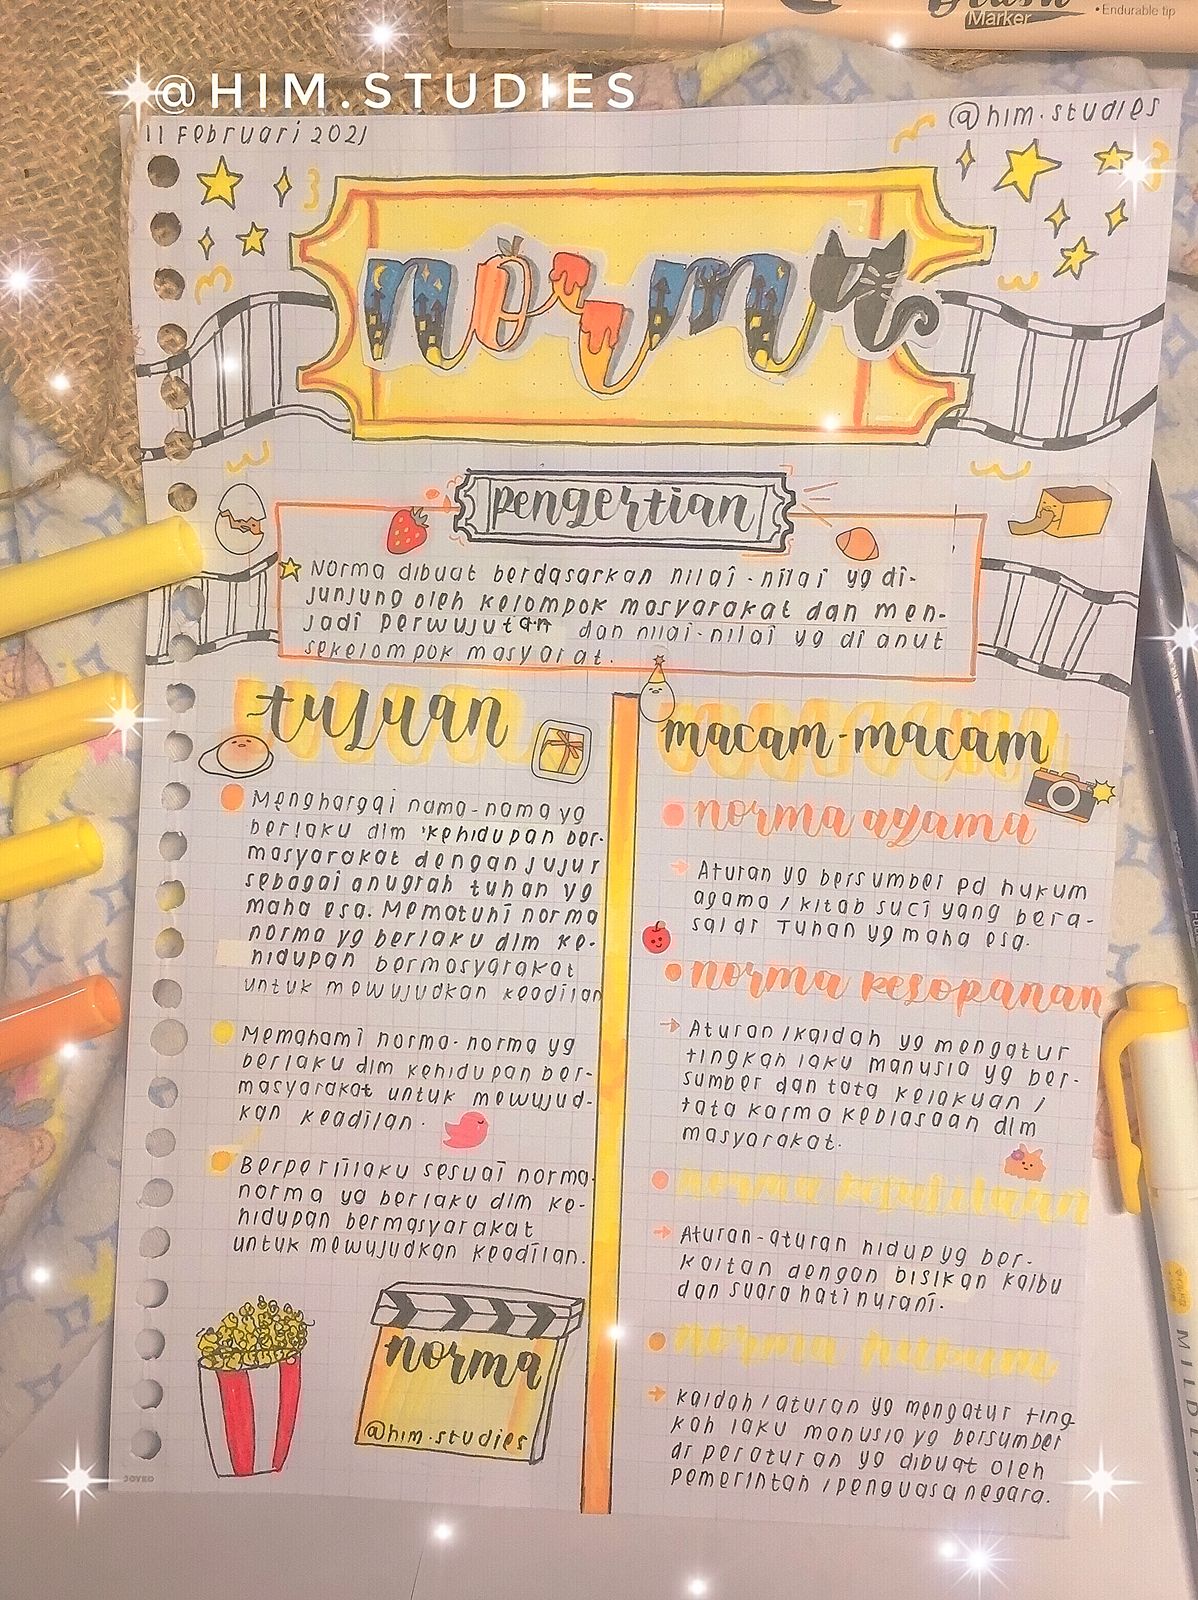 Brush
Marker
• Endurable tip
@HIM.STUDIES
@him.studies
11 Februari 2021
norma
pengertian
Norma dibuat berdasarkan nilai-nilai yg di-
junjung oleh kelompok masyarakat dan men-
jadi perwujutan dan nilai-nilai yg di anut
sekelompok masyarat.
tujuan
Menghargai nama-nama yg
berlaku dlm kehidupan ber-
masyarakat dengan jujur
sebagai anugrah tuhan yg
maha esa. Mematuhi norma
norma yg berlaku dlm ke-
hidupan bermasyarakat
untuk mewujudkan keadilan
Memahami norma-norma yg
berlaku dlm kehidupan ber-
masyarakat untuk mewujud-
kan keadilan.
Berperiilaku sesuai norma-
norma yg berlaku dlm ke-
hidupan bermasyarakat
untuk mewujudkan keadilan.
norma
@him.studies
JOYKO
macam-macam
norma agama
→ Aturan yg bersumber pd hukum
agama / kitab suci yang bera-
sal dr Tuhan yg maha esa.
norma kesopanan
→ Aturan / kaidah yg mengatur
tingkah laku manusia yg ber-
sumber dan tata kelakuan /
tata karma kebiasaan dlm
masyarakat.
norma kesusilaan
→ Aturan-aturan hidup yg ber-
kaitan dengan bisikan kalbu
dan suara hati nurani.
norma hukum
→ kaidah / aturan yg mengatur ting-
kah laku manusia yg bersumber
dr peraturan yg dibuat oleh
pemerintah / penguasa negara.